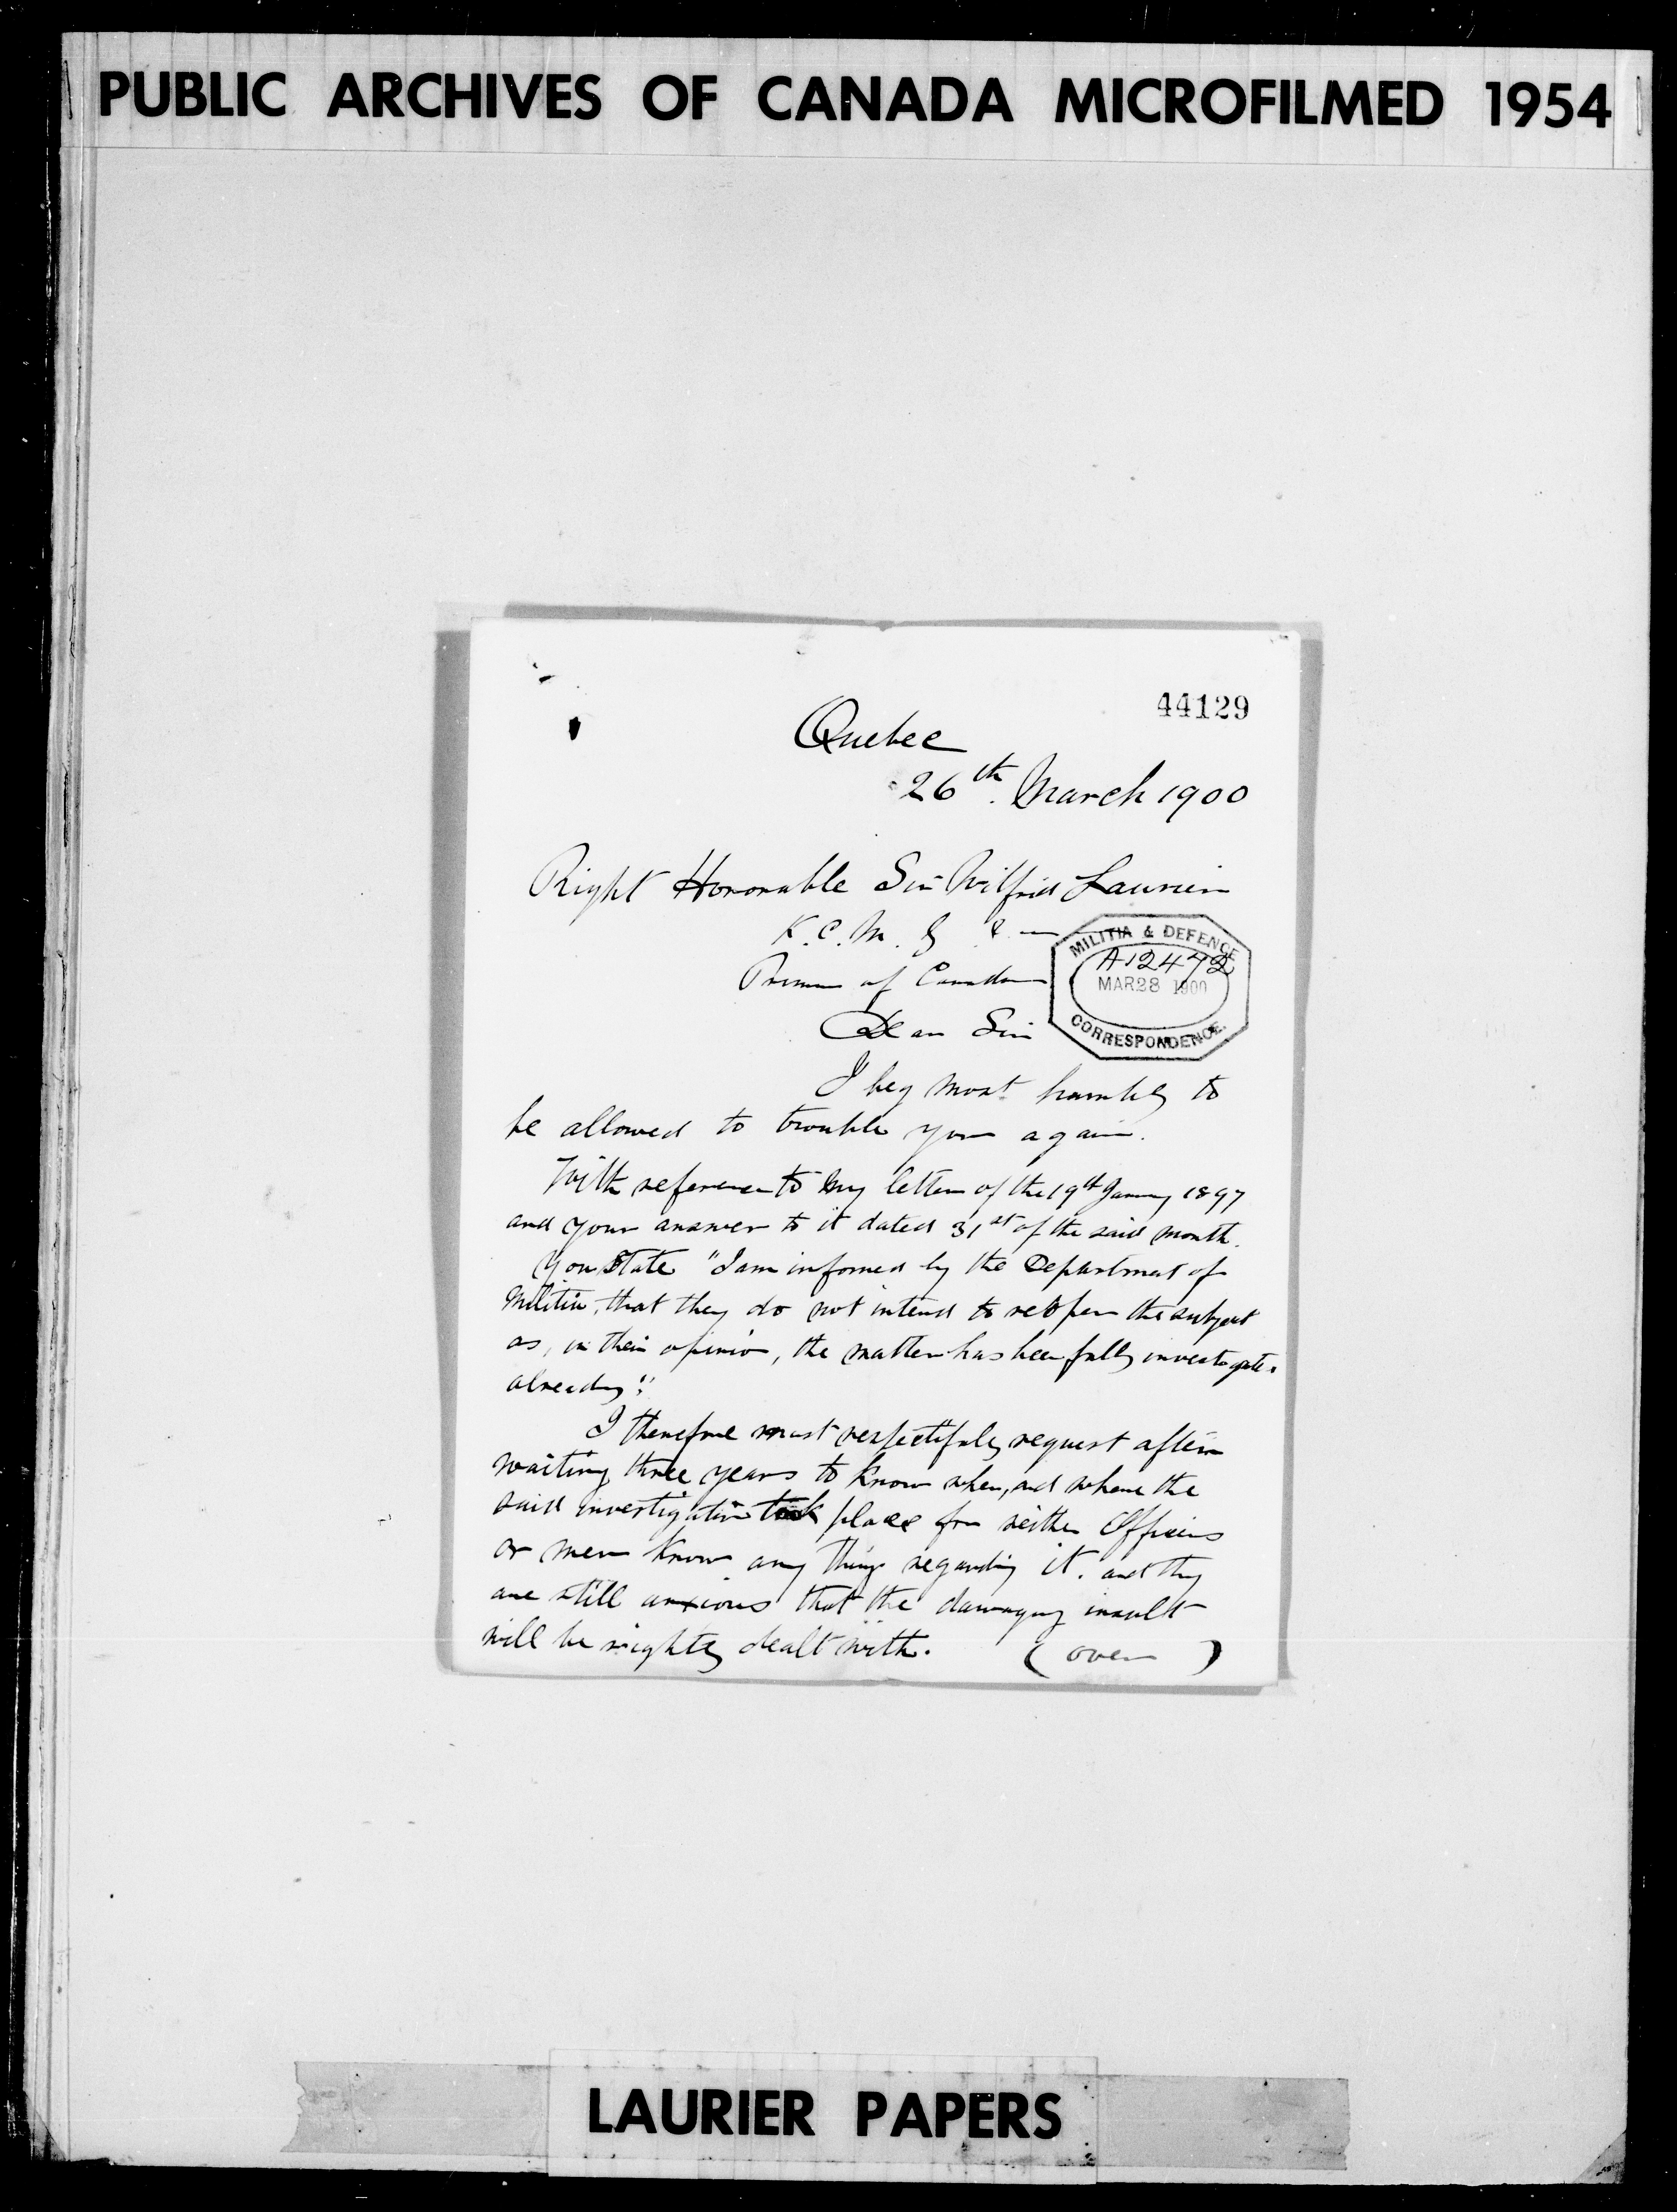 PUBLIC ARCHIVES OF CANADA MICROFILMED 1954
44129
Quebec
26th. March 1900
Right Honorable Sir Wilfrid Laurier
K. C. M. G &
Premier of Canada
MILITIA & DEFENCE
A12472
MAR 28 1900
CORRESPONDENCE
Dear Sir
I beg most humbly to
be allowed to trouble you again.
With reference to my letter of the 19th January 1897
and your answer to it dated 31st of the said month.
You State "I am informed by the Department of
Militia, that they do not intend to reopen the subject
as, in their opinion, the matter has been fully investigated
already".
I therefore most respectfully request after
waiting three years to know when, and where the
said investigation took place for neither Officers
or men know any thing regarding it. and they
are still anxious that the damaging insult
will be rightly dealt with. (over)
LAURIER PAPERS